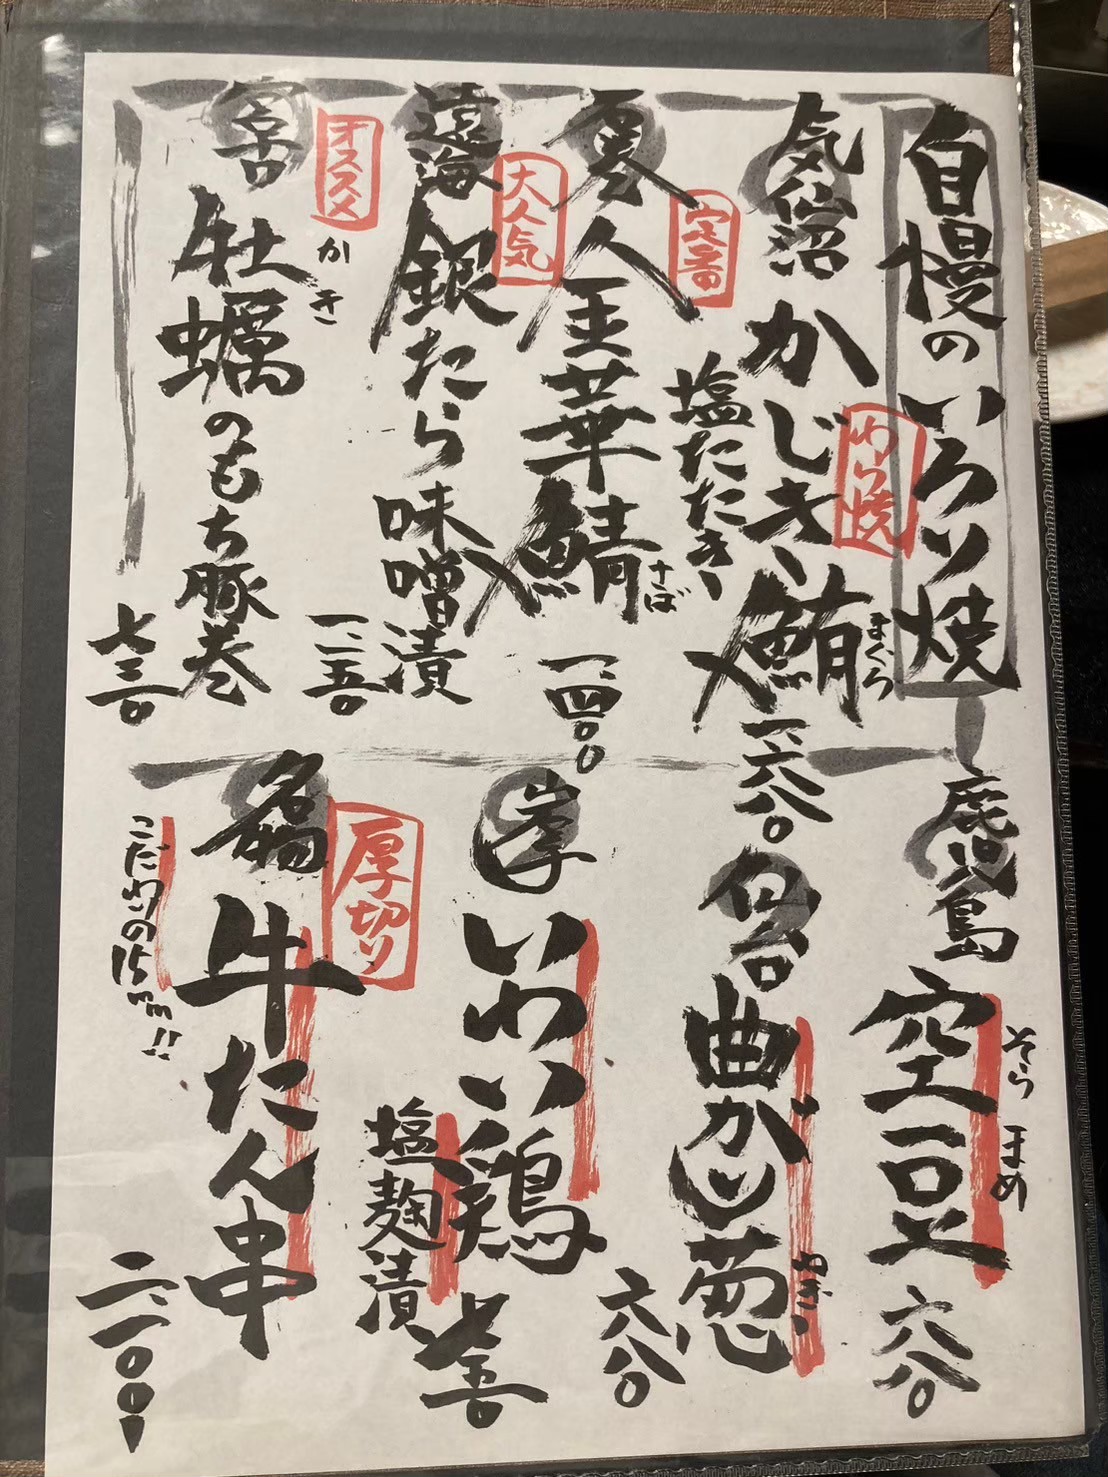 自慢のいろり焼
気仙沼 かじき鮪
まぐろ
わら焼
塩たたき
一、六八〇
定番
王華鯖
さば
一、四〇〇
大人気
遠海 銀たら味噌漬
一、二五〇
オススメ
牡蠣のもち豚巻
かき
七三〇
鹿児島 空豆
そらまめ
六八〇
仙台 曲がり葱
ねぎ
六八〇
いわい鶏
塩麹漬
七五〇
厚切り
牛たん串
こだわりの15mm!!
二、一〇〇